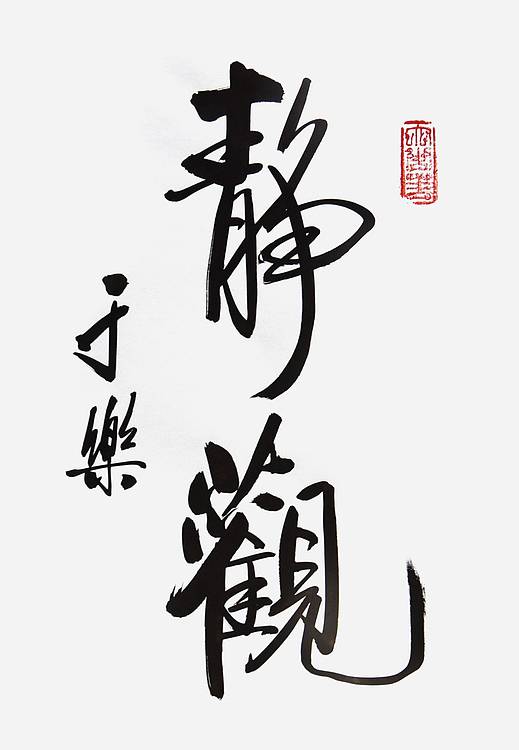 靜觀
于樂